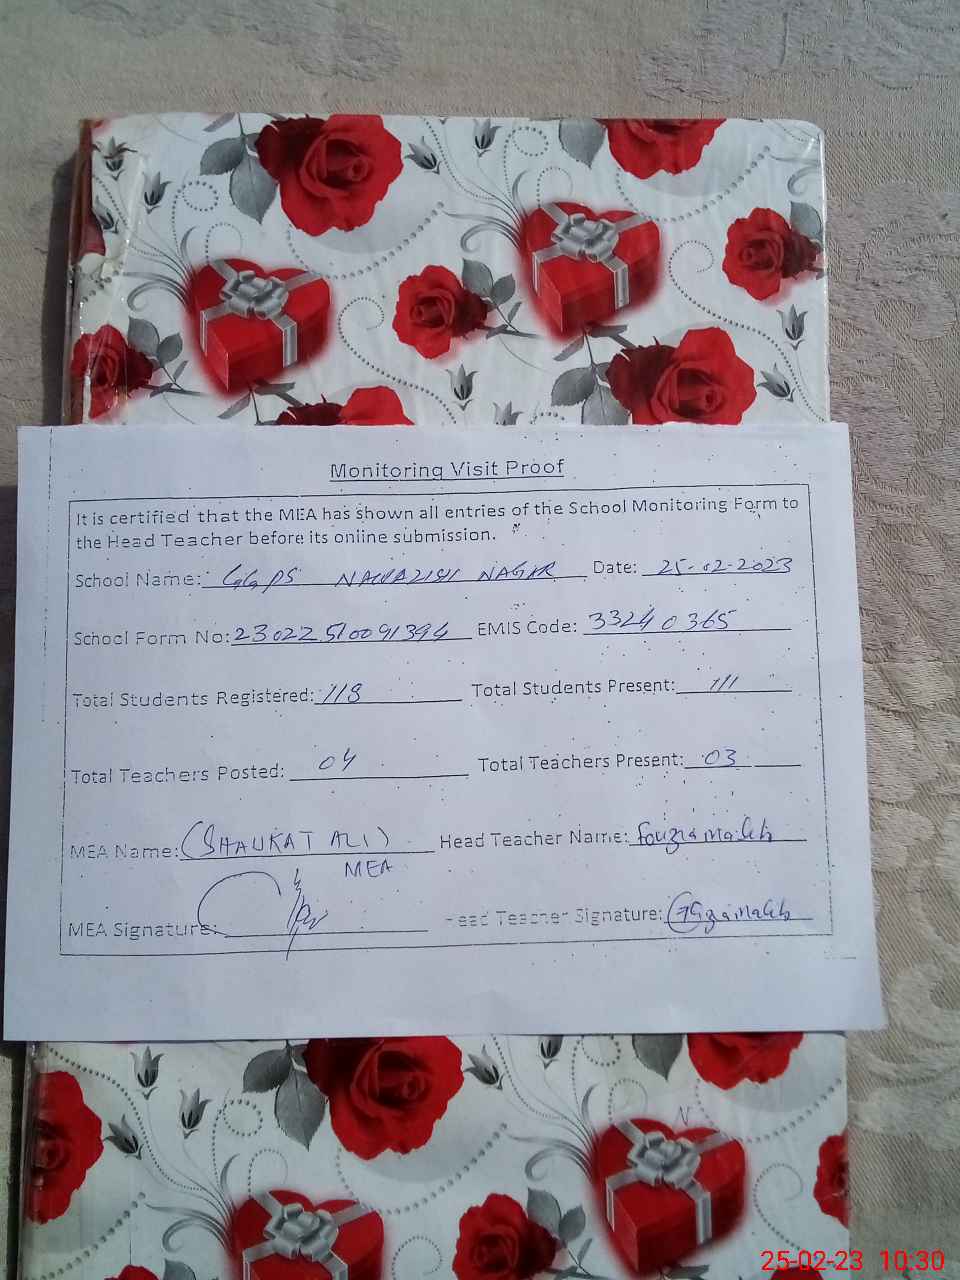 Monitoring Visit Proof
It is certified that the MEA has shown all entries of the School Monitoring Form to
the Head Teacher before its online submission.
School Name: GGPS NAWAZISH NAGAR Date: 25-02-2023
School Form No: 23022510091394 EMIS Code: 33240365
Total Students Registered: 118 Total Students Present: 111
Total Teachers Posted: 04 Total Teachers Present: 03
MEA Name: (SHAUKAT ALI) Head Teacher Name: Fouzia
MEA
MEA Signature: Head Teacher Signature:
25-02-23 10:30